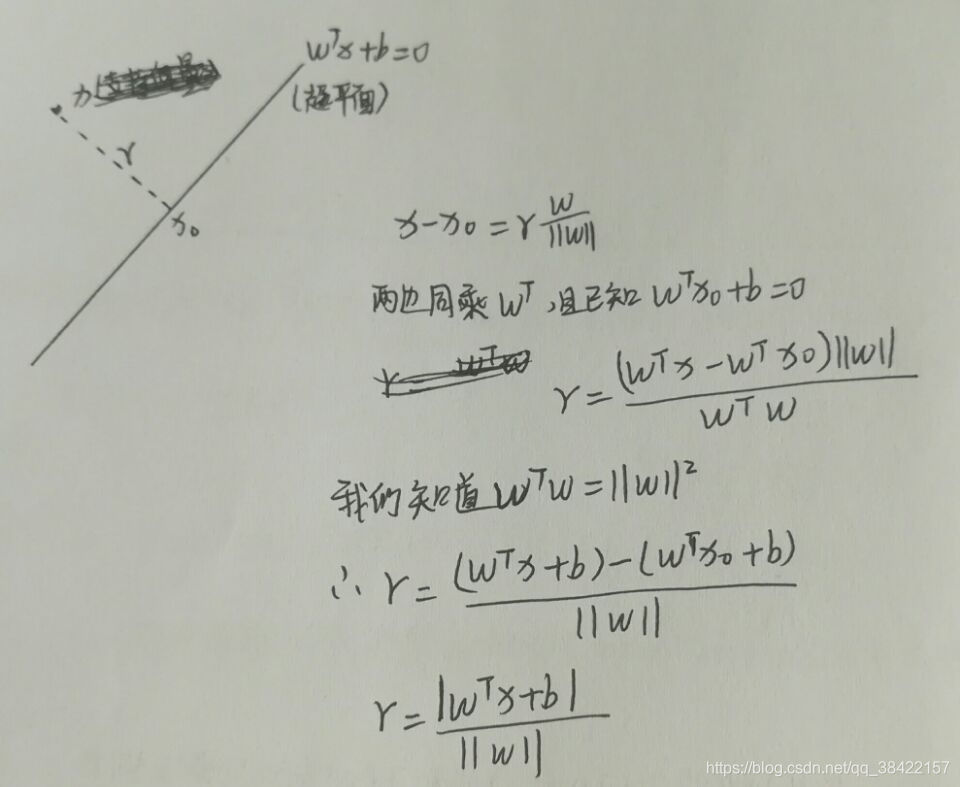 wᵀx+b=0
x
(超平面)
r
x₀
x-x₀ = r w/||w||
两边同乘 wᵀ,且已知 wᵀx₀+b=0
r = (wᵀx-wᵀx₀)||w|| / wᵀw
我们知道 wᵀw = ||w||²
∴ r = (wᵀx+b)-(wᵀx₀+b) / ||w||
r = |wᵀx+b| / ||w||
https://blog.csdn.net/qq_38422157